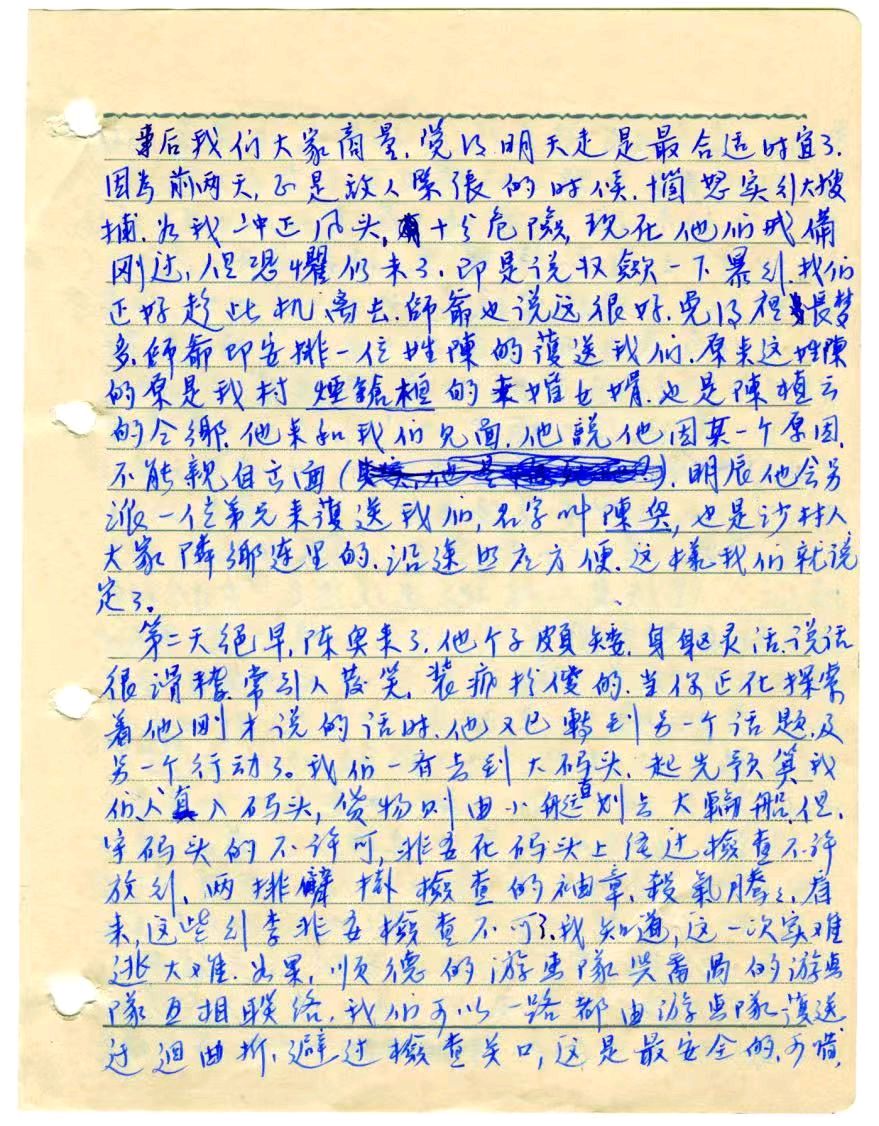 事后我们大家商量，觉得明天走是最合适时宜了.
因為前两天，正是敌人緊張的时候.惱怒实引大搜
捕.为我冲正风头，十分危險，现在他们戒備
刚过，但恐懼仍未了.即是说収歛一下暴引.我们
正好趁此机离去.師爺也说这很好.免得夜長梦
多.師爺即安排一位姓陳的護送我们.原来这姓陳
的原是我村煙鎗桓的女婿.也是陳植云
的仝鄉.他来和我们见面.他說他因某一个原因，
不能親自云面（ ）.明辰他会另
派一位弟兄来護送我们，名字叫陳奥，也是沙村人
大家隣鄉连里的.沿途照应方便.这樣我们就说
定了。
第二天絕早，陈奥来了.他个子頗矮.身躯灵活.说话
很滑稽.常引人發笑.装痴扮傻的.当你正在探索
着他刚才说的话时.他又已轉到另一个话题及
另一个行动了。我们一看去到大码头.起先预算我
们人直入码头，货物则由小艇直划去大輪船.但，
守码头的不许可，非要在码头上经过檢查不许
放引.两排臂掛檢查的袖章.殺氣腾々.看
来，这些引李非要檢查不可了.我知道，这一次实难
逃大难.如果，顺德的游击隊與番禺的游击
隊互相聯络.我们可以一路都由游击隊護送
迂迴曲折.避过檢查关口，这是最安全的.可惜，